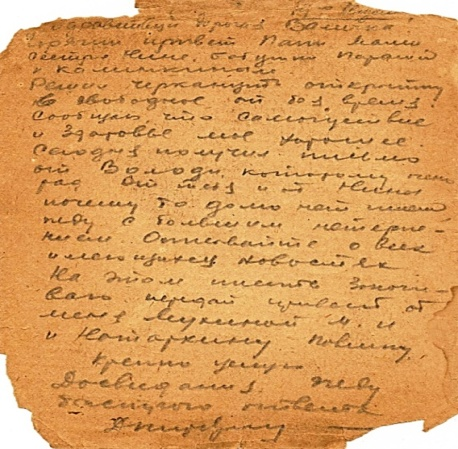 Здравствуй дорогая Валичка
Горячий привет Папи Мами
сестре Нине, бабушки
и
Решил черкануть открытку
в свободное от боя время
сообщаю, что самочувствие
и здоровье мое хорошее
сегодня получил письмо
от Володи, которому очень
рад от меня и от Нины
почему то долго нет писем
жду с большим нетерпе-
нием Описывайте о всех
имеющихся новостях
На этом писать закончи-
ваю передай привет от
меня Мухиной М. и
и
Крепко целую
Досвидания жду
быстрого ответа